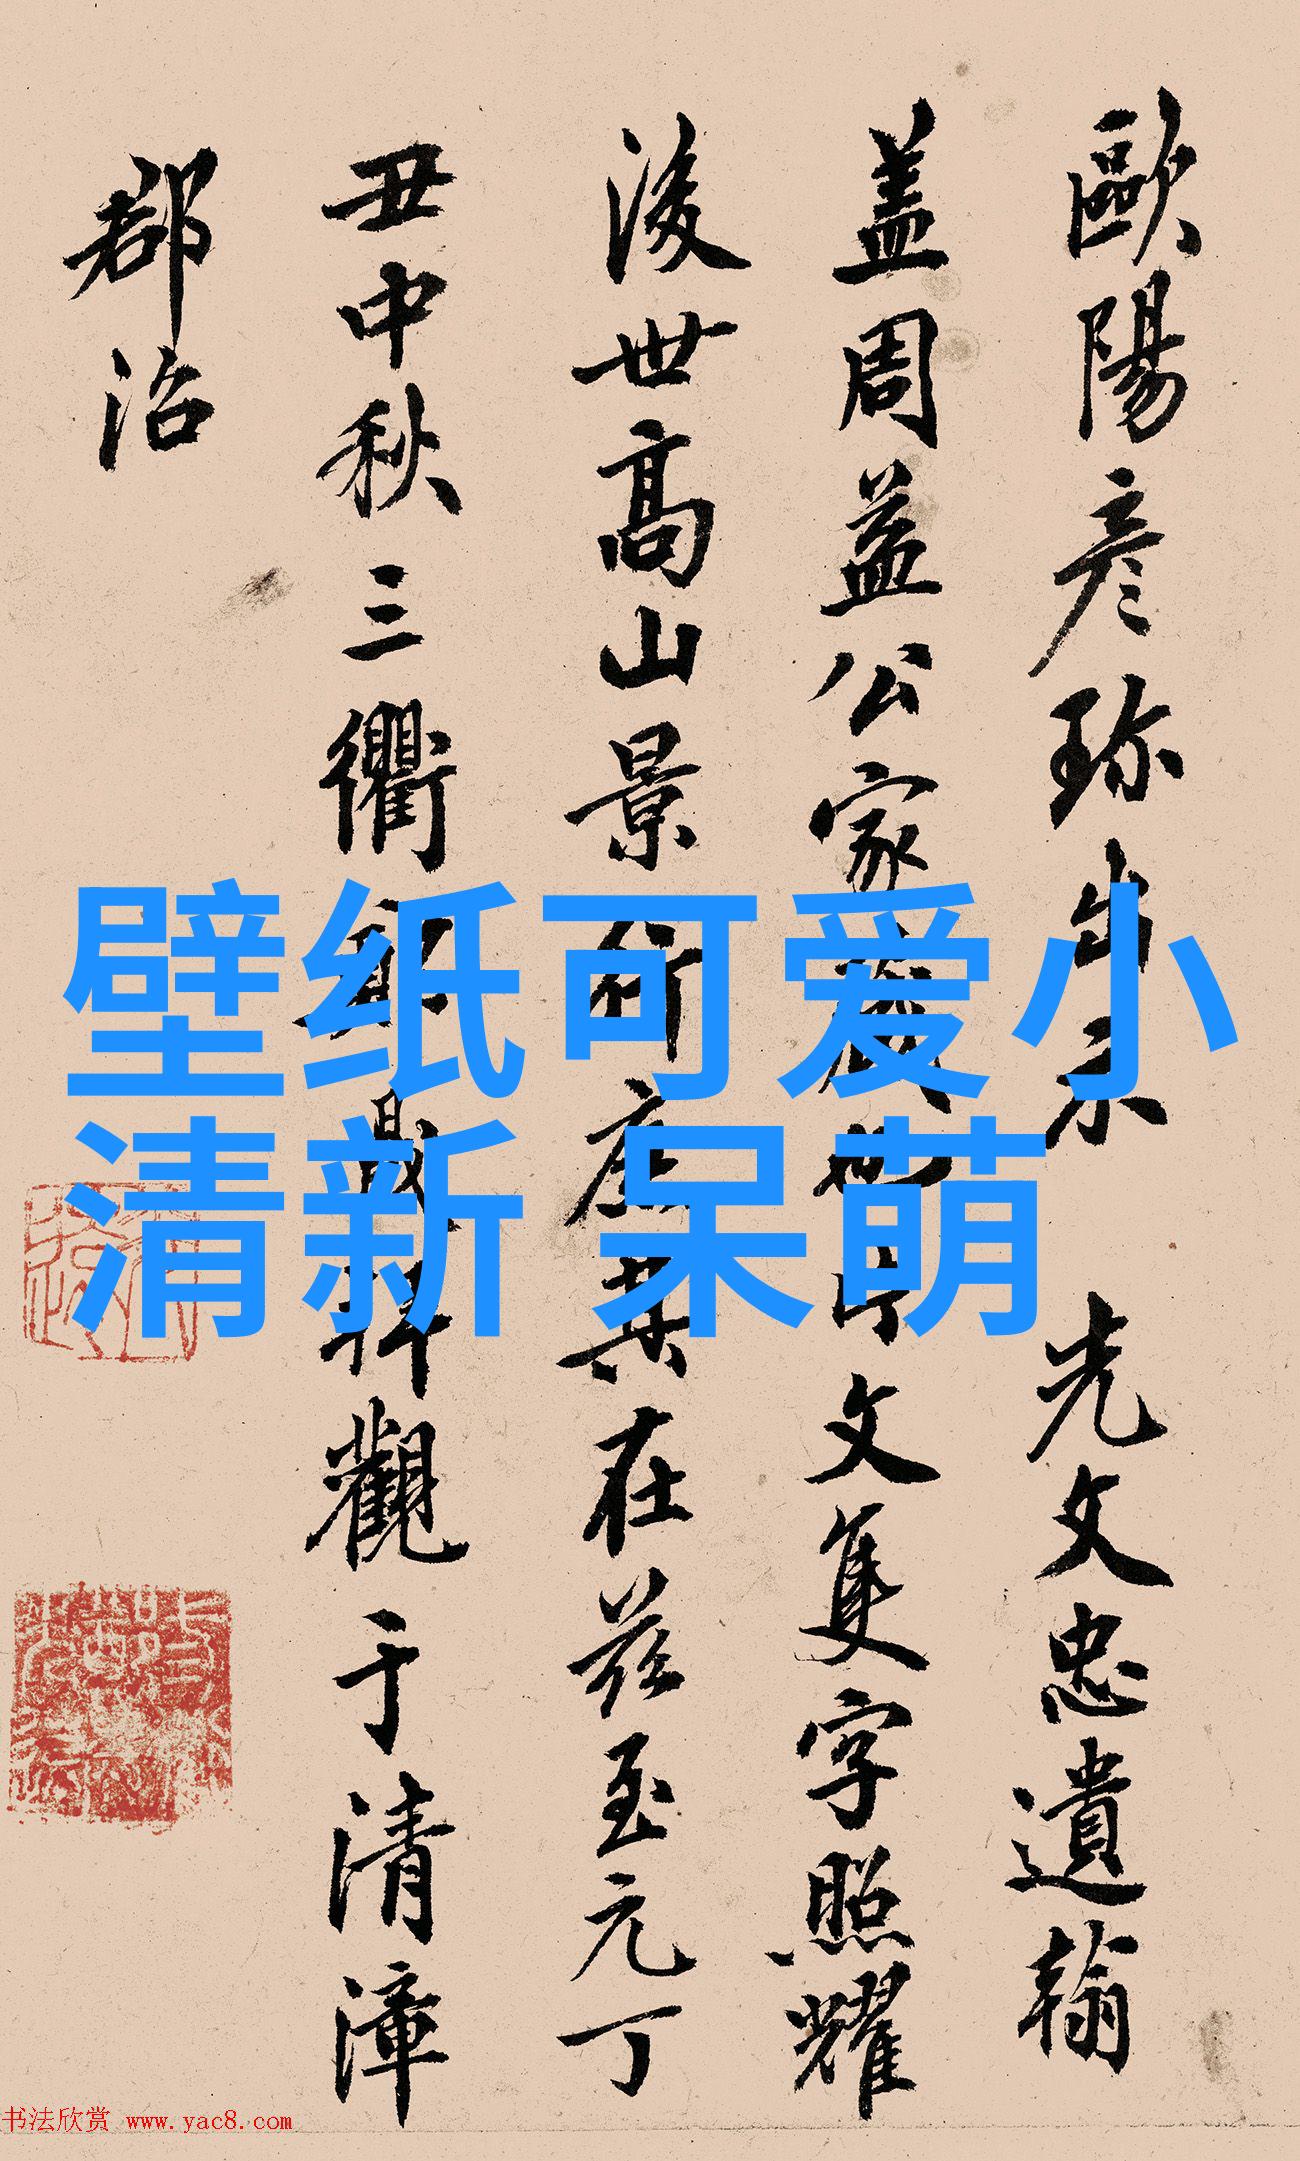 歐陽彥珎出示 先文忠遺翰
盖周益公家藏也片文隻字照耀
後世高山景行產其在茲至元丁
丑中秋三衢觀于清漳
郡治
壁纸可爱小
清新 呆萌
书法欣赏 www.yac8.com